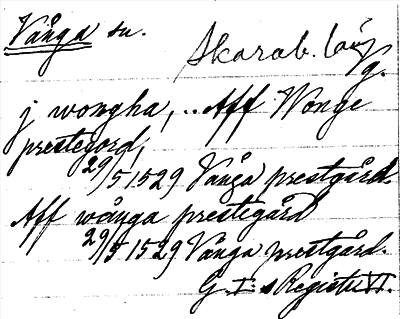 Vånga sn.
Skarab. län
Vg.
j wongha, .. Aff Wonge
prestegord,
29/5 1529 Vånga prestgård.
Aff wånga prestegård
29/5 1529 Vånga prestgård.
G. I:s Registr VI.